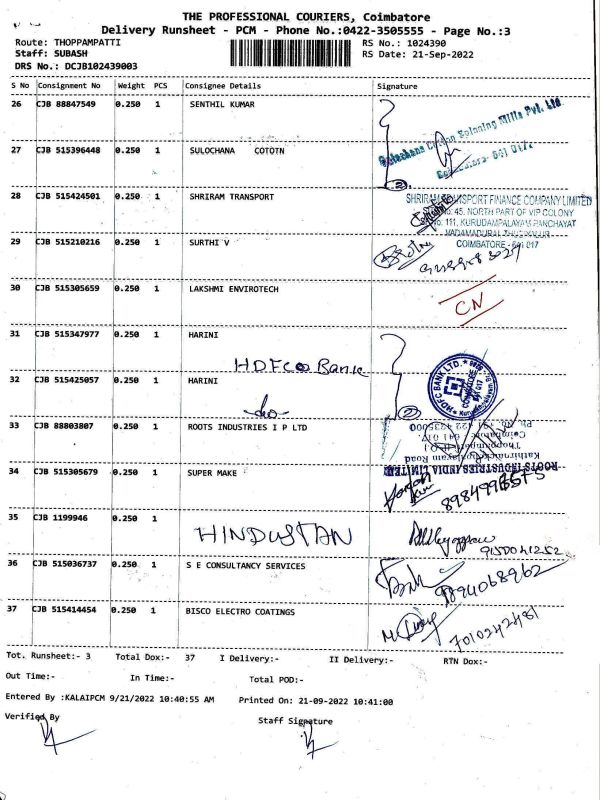 THE PROFESSIONAL COURIERS, Coimbatore
Delivery Runsheet - PCM - Phone No.:0422-3505555 - Page No.:3
Route: THOPPAMPATTI RS No.: 1024390
Staff: SUBASH RS Date: 21-Sep-2022
DRS No.: DCJB102439003
S No Consignment No Weight PCS Consignee Details Signature
26 CJB 88847549 0.250 1 SENTHIL KUMAR
Sulochana Cotton Spinning Mills Pvt. Ltd.
27 CJB 515396448 0.250 1 SULOCHANA COTOTN
Coimbatore- 641 017.
2
28 CJB 515424501 0.250 1 SHRIRAM TRANSPORT SHRIRAM TRANSPORT FINANCE COMPANY LIMITED
No: 45, NORTH PART OF VIP COLONY
No: 111, KURUDAMPALAYAM PANCHAYAT
29 CJB 515210216 0.250 1 SURTHI V COIMBATORE - 641 017
30 CJB 515305659 0.250 1 LAKSHMI ENVIROTECH
CN
31 CJB 515347977 0.250 1 HARINI
HDFC Bank
HDFC BANK LTD.
COIMBATORE
32 CJB 515425057 0.250 1 HARINI
do 2
33 CJB 88803807 0.250 1 ROOTS INDUSTRIES I P LTD
ROOTS INDUSTRIES INDIA LIMITED
Coimbatore 641 017.
34 CJB 515305679 0.250 1 SUPER MAKE
35 CJB 1199946 0.250 1
HINDUSTAN
9150041252
36 CJB 515036737 0.250 1 S E CONSULTANCY SERVICES
9894068962
37 CJB 515414454 0.250 1 BISCO ELECTRO COATINGS
7010242481
Tot. Runsheet:- 3 Total Dox:- 37 I Delivery:- II Delivery:- RTN Dox:-
Out Time:- In Time:- Total POD:-
Entered By :KALAIPCM 9/21/2022 10:40:55 AM Printed On: 21-09-2022 10:41:00
Verified By Staff Signature